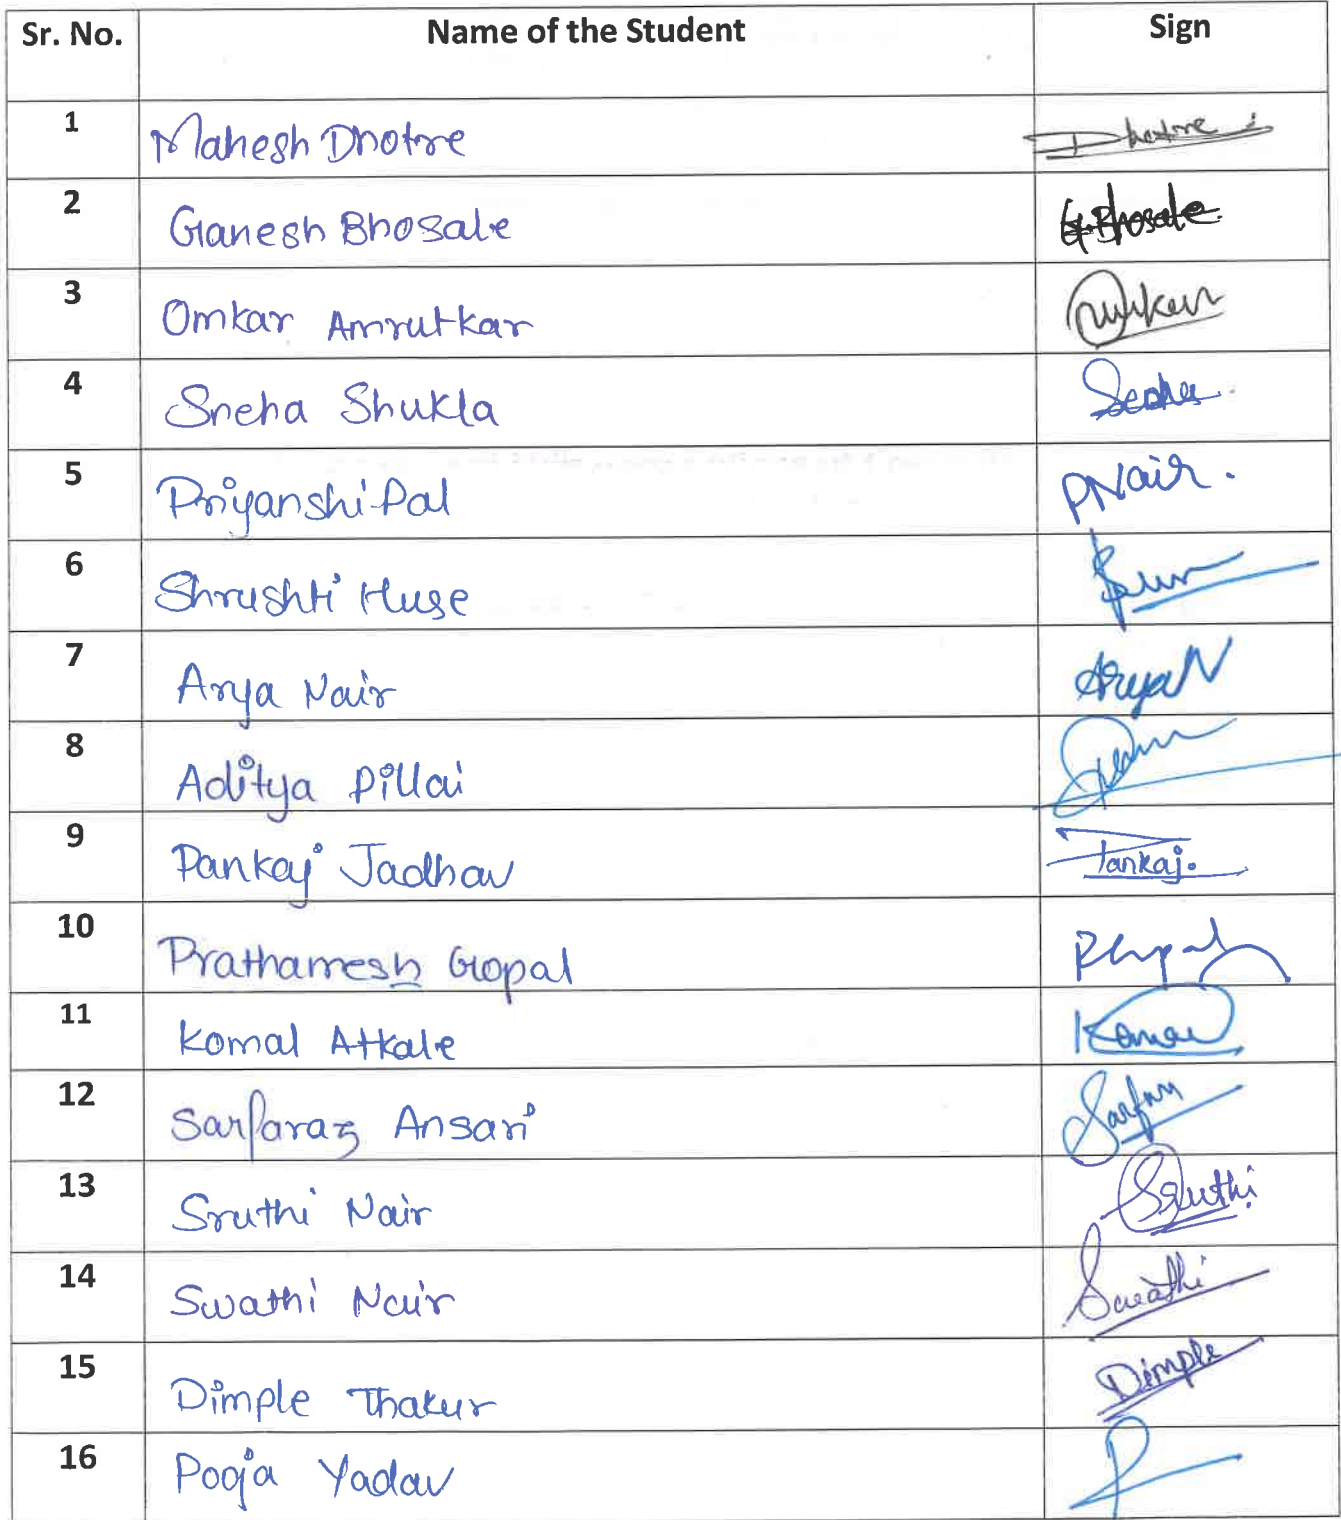 Sr. No. Name of the Student Sign
1 Mahesh Dhotre Dhotre
2 Ganesh Bhosale G.Bhosale
3 Omkar Amrutkar Omkar
4 Sneha Shukla
5 Priyanshi Pal PNair.
6 Shrushti Huse
7 Arya Nair Arya N
8 Aditya Pillai
9 Pankaj Jadhav Pankaj.
10 Prathamesh Gopal
11 Komal Atkale Komal
12 Sarfaraz Ansari
13 Sruthi Nair Sruthi
14 Swathi Nair Swathi
15 Dimple Thakur Dimple
16 Pooja Yadav